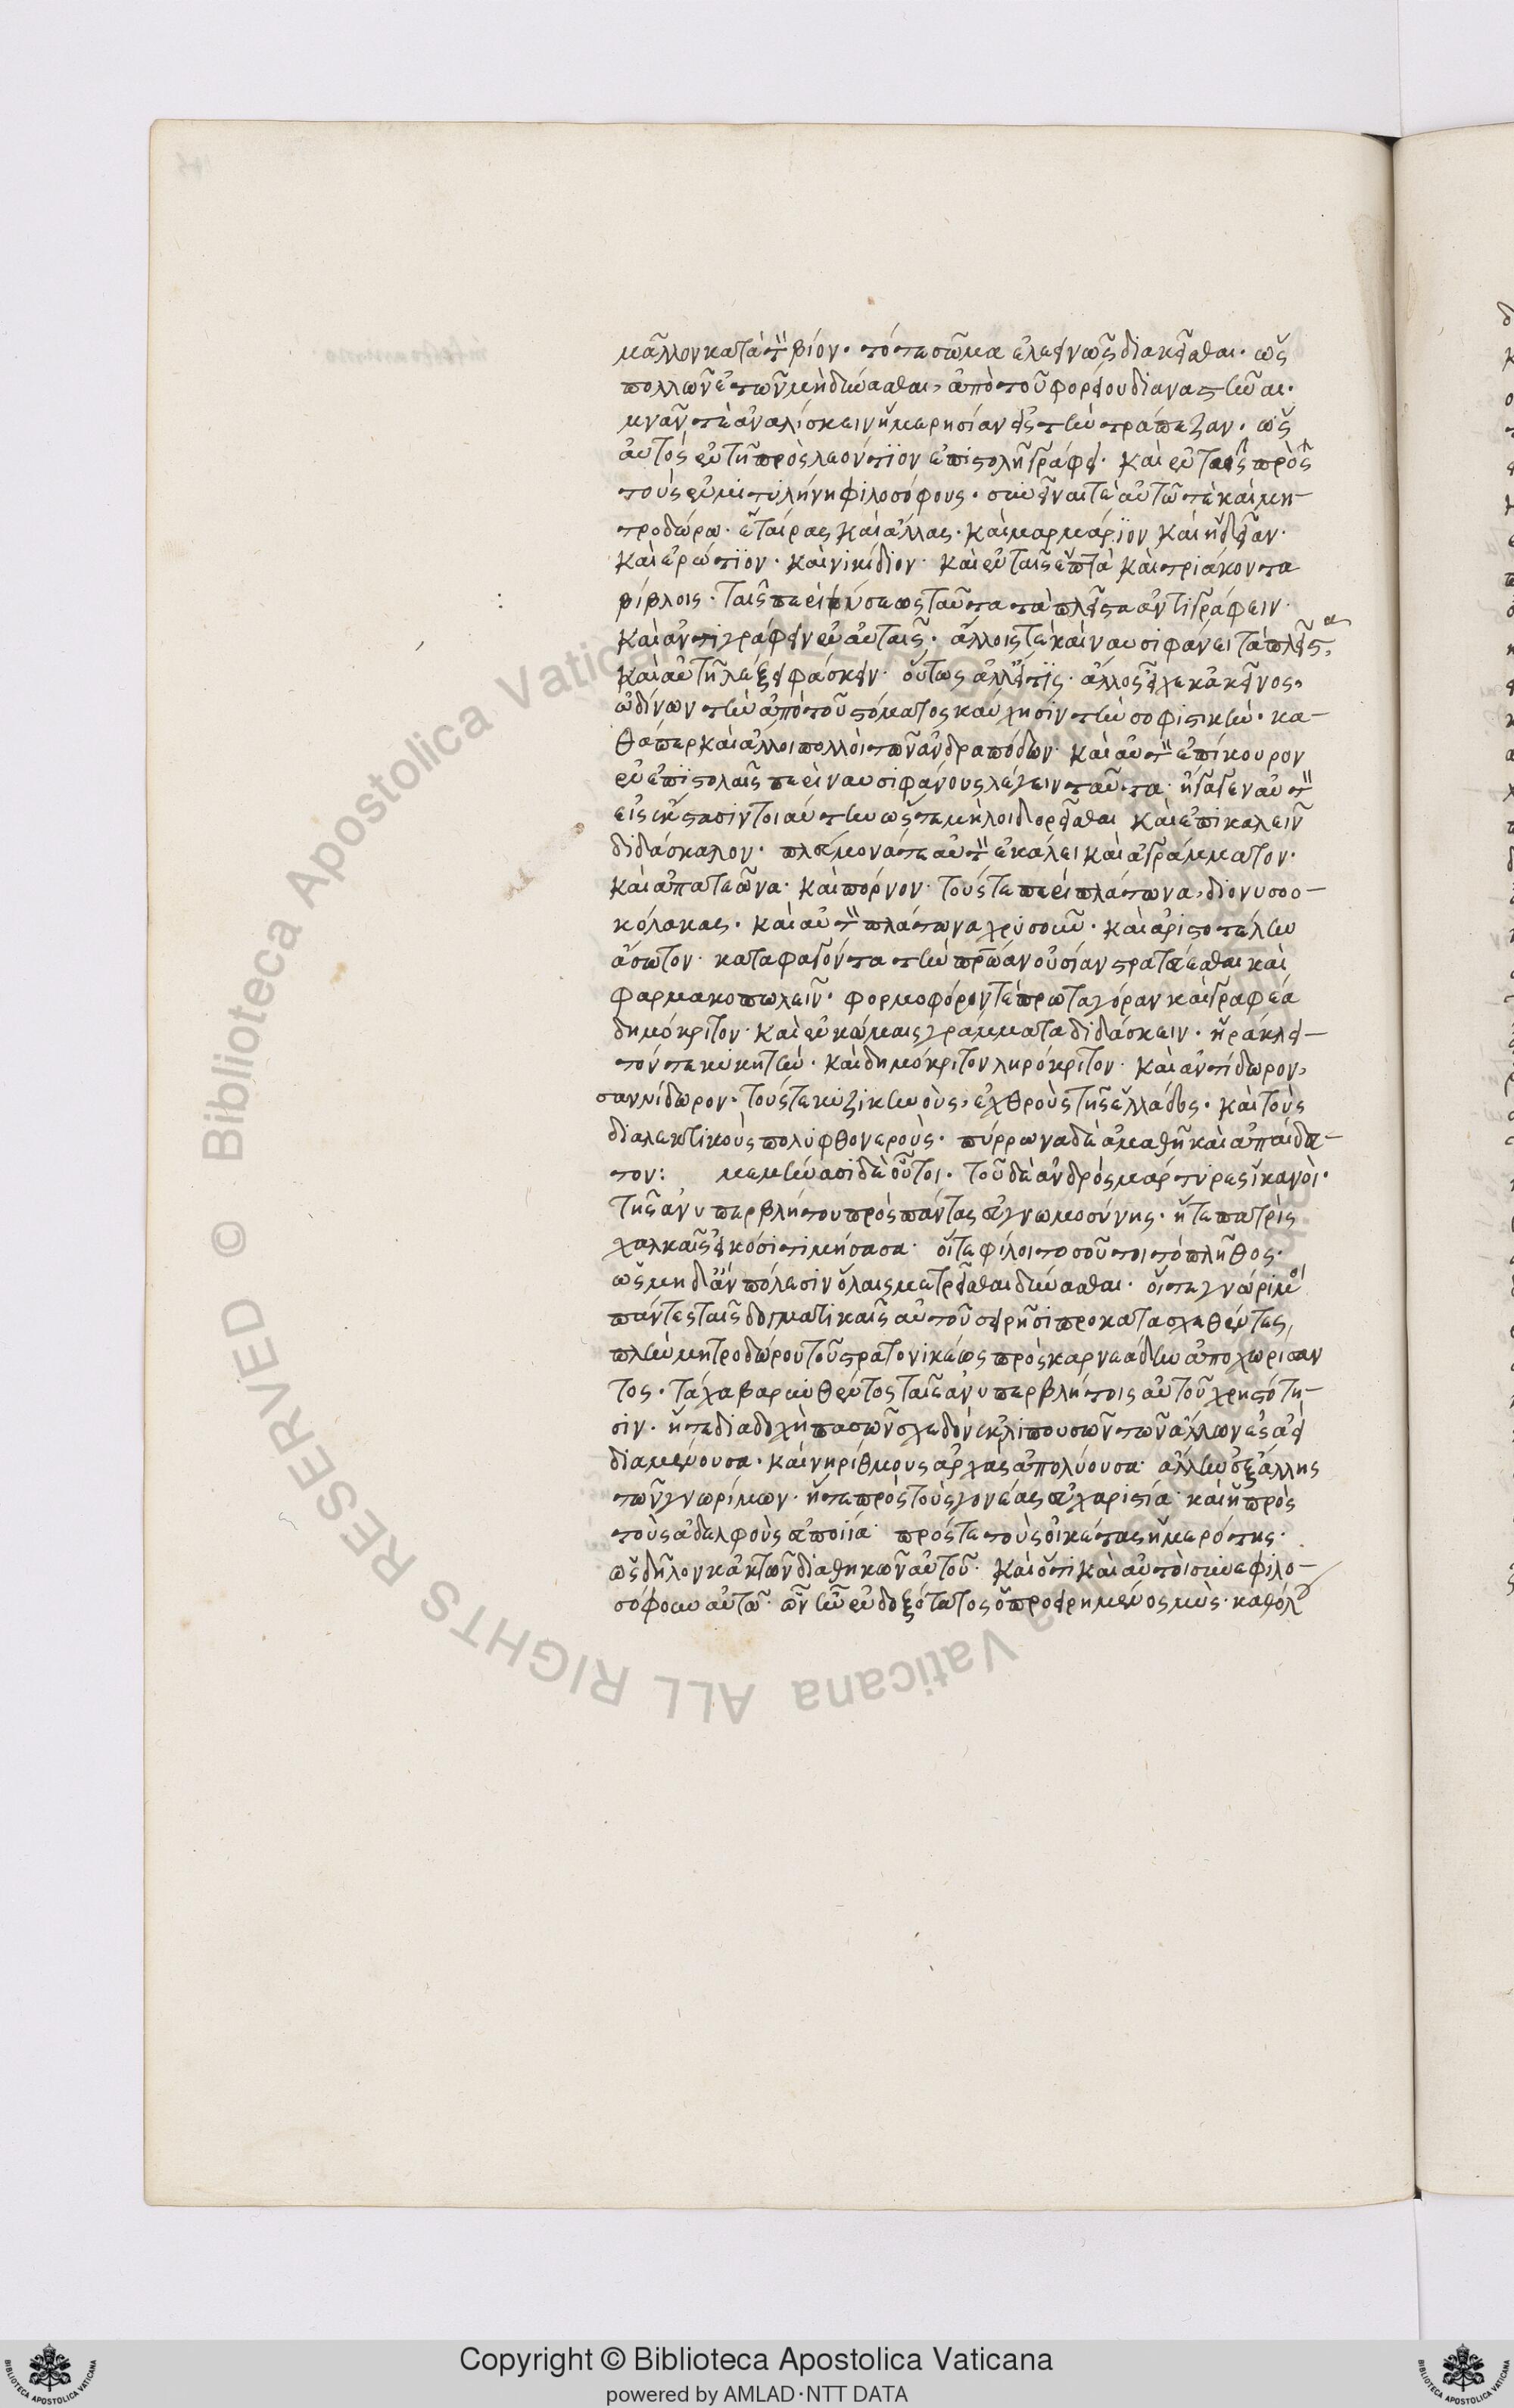 μᾶλλον κατὰ τὸν βίον· τό τε σῶμα ἐλεεινῶς διακεῖσθαι· ὡς
πολλῶν ἐτῶν μὴ δύνασθαι, ἀπὸ τοῦ φορείου διαναστῆναι·
μνᾶν τὲ ἀναλίσκειν ἡμερησίαν εἰς τὴν τράπεζαν· ὡς
αὐτὸς ἐν τῇ πρὸς λεόντιον ἐπιστολῇ γράφει· καὶ ἐν ταῖς πρὸς
τοὺς ἐν μιτυλήνη φιλοσόφους· συνεῖναι τὲ αὐτῶ τὲ καὶ μη-
τροδώρω· ἑταίρας καὶ ἄλλας· καὶ μαρμάριον καὶ ἡδεῖαν·
καὶ ἐρώτιον· καὶ νικίδιον· καὶ ἐν ταῖς ἑπτὰ καὶ τριάκοντα
βίβλοις· ταῖς περὶ φύσεως ταῦτα τὰ πλεῖστα ἀντιγράφειν·
καὶ ἀντιγράφειν ἐν αὐταῖς· ἄλλοις τὲ καὶ ναυσιφάνει τὰ πλεῖστα
καὶ αὐτῇ λέξει φάσκειν· οὕτως ἀλλ' εἴτις· ἄλλος εἶχε κἀκεῖνος,
ὠδίνων τὴν ἀπὸ τοῦ στόματος καύχησιν τὴν σοφιστικὴν· κα-
θάπερ καὶ ἄλλοι πολλοὶ τῶν ἀνδραπόδων· καὶ αὐτὸν ἐπίκουρον
ἐν ἐπιστολαῖς περὶ ναυσιφάνους λέγειν ταῦτα· ἤγαγεν αὐτὸν
εἰς ἔκστασιν τοιαύτην ὥστε μὴ λοιδορεῖσθαι καὶ ἐπικαλεῖν
διδάσκαλον· πλεύμονά τε αὐτὸν ἐκάλει καὶ ἀγράμματον·
καὶ ἀπατεῶνα· καὶ πόρνον· τούς τε περὶ πλάτωνα, διονυσο-
κόλακας· καὶ αὐτὸν πλάτωνα χρυσοῦν· καὶ ἀριστοτέλην
ἄσωτον· καταφαγόντα τὴν πρώαν οὐσίαν στρατεύεσθαι καὶ
φαρμακοπωλεῖν· φορμοφόρον τὲ πρωταγόραν καὶ γραφέα
δημόκριτον· καὶ ἐν κώμαις γράμματα διδάσκειν· ἡράκλει-
τόν τε κυκητὴν· καὶ δημόκριτον ληρόκριτον· καὶ ἀντίδωρον,
σαννίδωρον· τούς τε κυζικηνοὺς, ἐχθροὺς τῆς ἑλλάδος· καὶ τοὺς
διαλεκτικοὺς πολυφθονεροὺς· πύρρωνα δὲ ἀμαθῆ καὶ ἀπαίδευ-
τον: μεμήνασι δὲ οὗτοι· τοῦ δὲ ἀνδρὸς μάρτυρες ἱκανοὶ·
τῆς ἀνυπερβλήτου πρὸς πάντας εὐγνωμοσύνης· ἥ τε πατρὶς
χαλκαῖς εἰκόσι τιμήσασα· οἵ τε φίλοι τοσοῦτοι τὸ πλῆθος·
ὡς μηδ' ἂν πόλεσιν ὅλαις μετρεῖσθαι δύνασθαι· οἵ τε γνώριμοι
πάντες ταῖς δογματικαῖς αὐτοῦ σειρῆσι προκατασχεθέντες,
πλὴν μητροδώρου τοῦ στρατονικέως πρὸς καρνεάδην ἀποχωρίσαν
τος· τάχα βαρυνθέντος ταῖς ἀνυπερβλήτοις αὐτοῦ χρηστότη-
σιν· ἥ τε διαδοχὴ πασῶν σχεδὸν ἐκλιπουσῶν τῶν ἄλλων ἐς ἀεὶ
διαμένουσα· καὶ νηρίθμους ἀρχὰς ἀπολύουσα· ἄλλην ἐξ ἄλλης
τῶν γνωρίμων· ἥ τε πρὸς τοὺς γονέας εὐχαριστία· καὶ ἡ πρὸς
τοὺς ἀδελφοὺς εὐποιία· πρός τε τοὺς οἰκέτας ἡμερότης·
ὡς δῆλον κἀκ τῶν διαθηκῶν αὐτοῦ· καὶ ὅτι καὶ αὐτοὶ συνεφιλο-
σόφουν αὐτῶ· ὧν ἦν ἐνδοξότατος ὁ προειρημένος μῦς· καθόλου